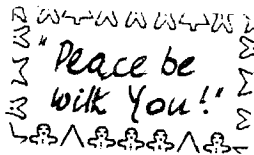 "Peace be
with You!"